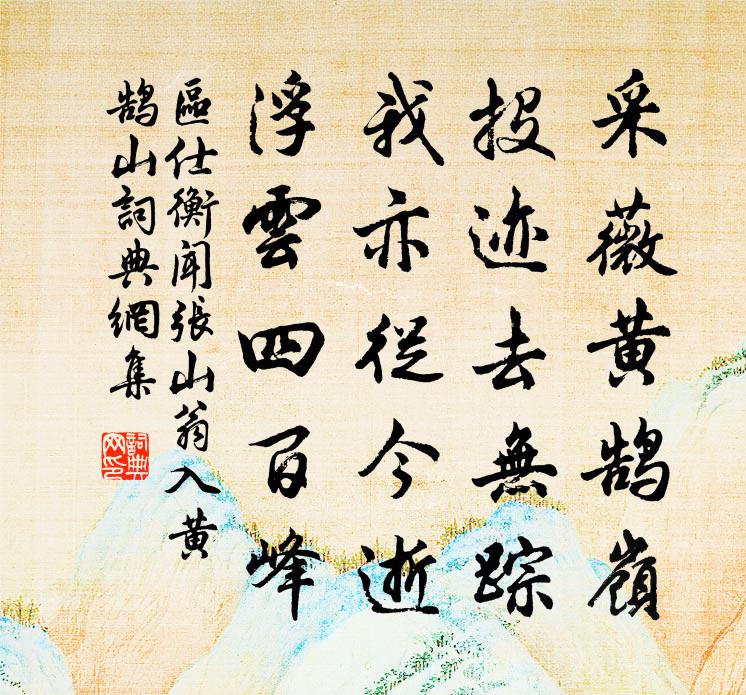 采薇黄鹄嶺
投迹去無踪
我亦從今逝
浮雲四百峰
區仕衡聞張山翁入黄
鹄山詞典網集
詞典
网印